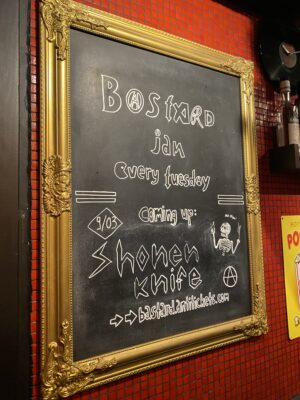 BASTARD
jan
every tuesday
coming up:
9/03
Shonen
knife
→→bastard.antitickets.com
PO